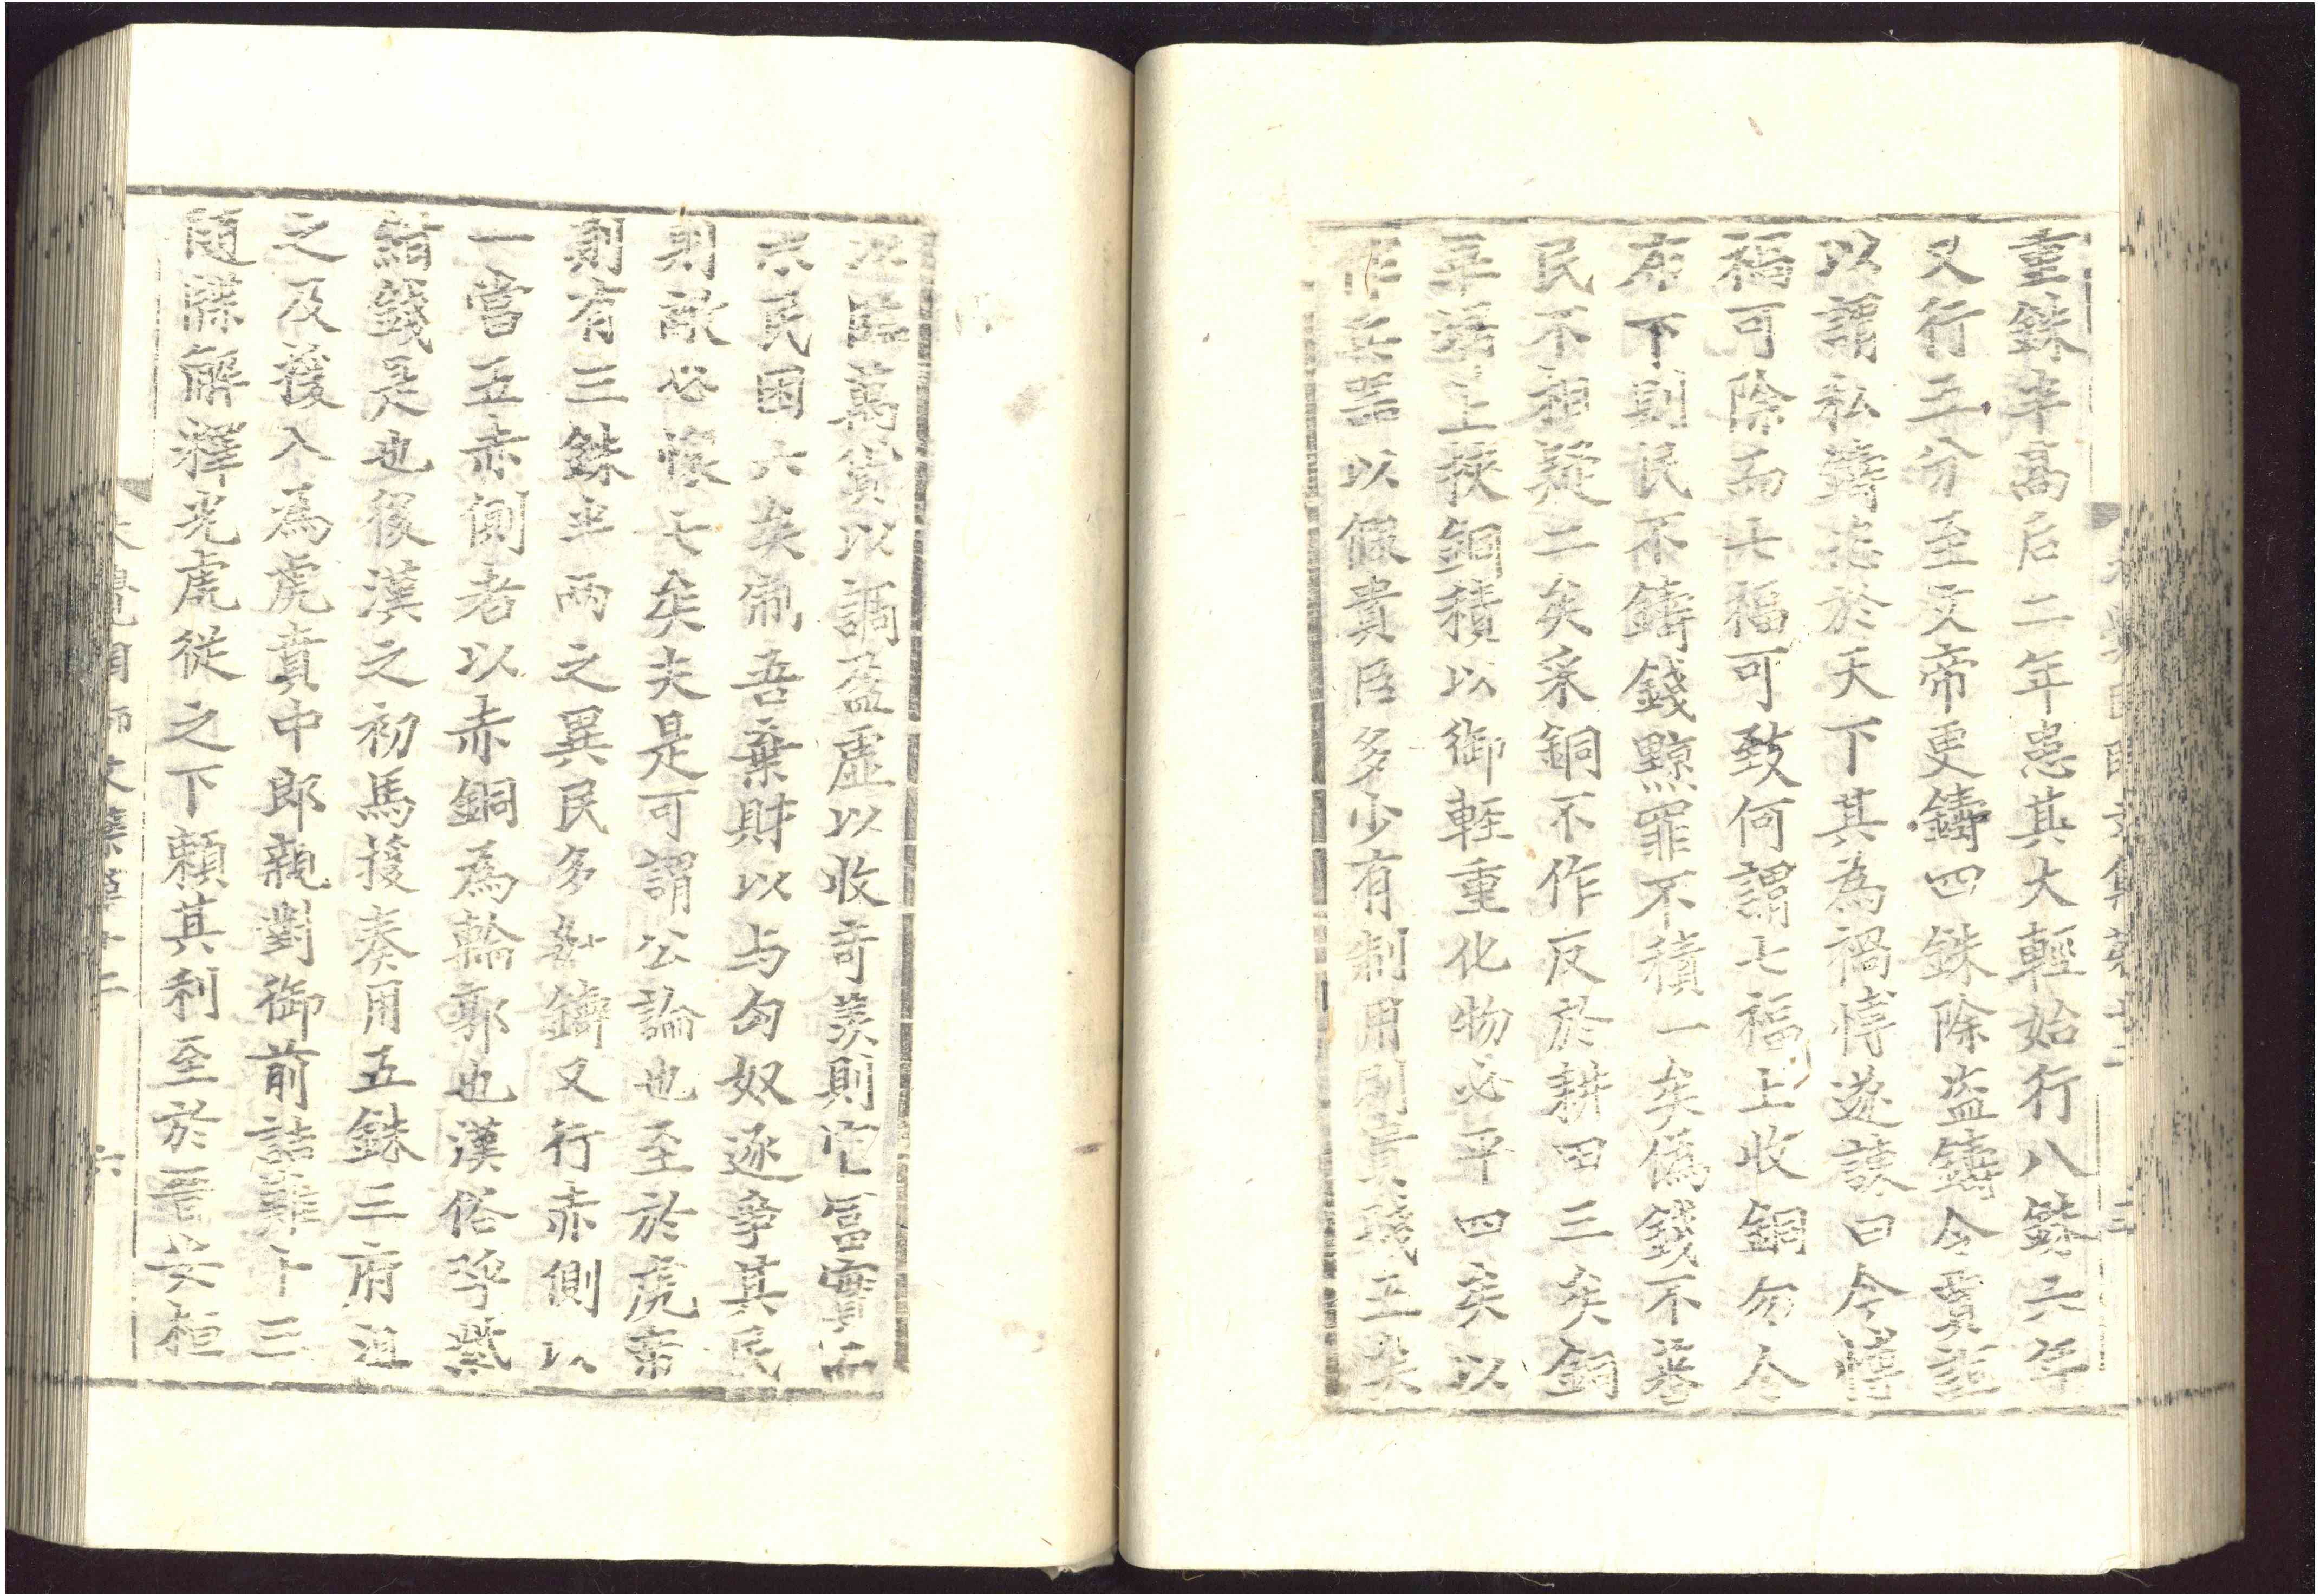 重銖半高后二年患其大輕始行八銖六年
又行五分至文帝更鑄四銖除盗鑄令賈誼
以謂私鑄恣於天下其為禍博遂諫曰今博
禍可除而七福可致何謂七福上收銅勿令
布下則民不鑄錢黥罪不積一矣偽錢不蕃
民不相疑二矣采銅不作反於耕田三矣銅
畢歸上挾銅積以御輕重化物必平四矣以
作兵器以假貴臣多少有制用別貴賤五矣
以臨萬貨以調盈虛以收奇羨則官冨實而
末民困六矣制吾棄財以与匈奴逐爭其民
則敵必懷七矣夫是可謂公論也至於虎帝
則有三銖半兩之異民多姧鑄又行赤側以
一當五赤側者以赤銅為輪郭也漢俗
緡錢是也後漢之初馬援奏用五銖三府沮
之及援入為虎賁中郎親對御前詰難十三
随牒解釋光虎從之下賴其利至於晋安桓